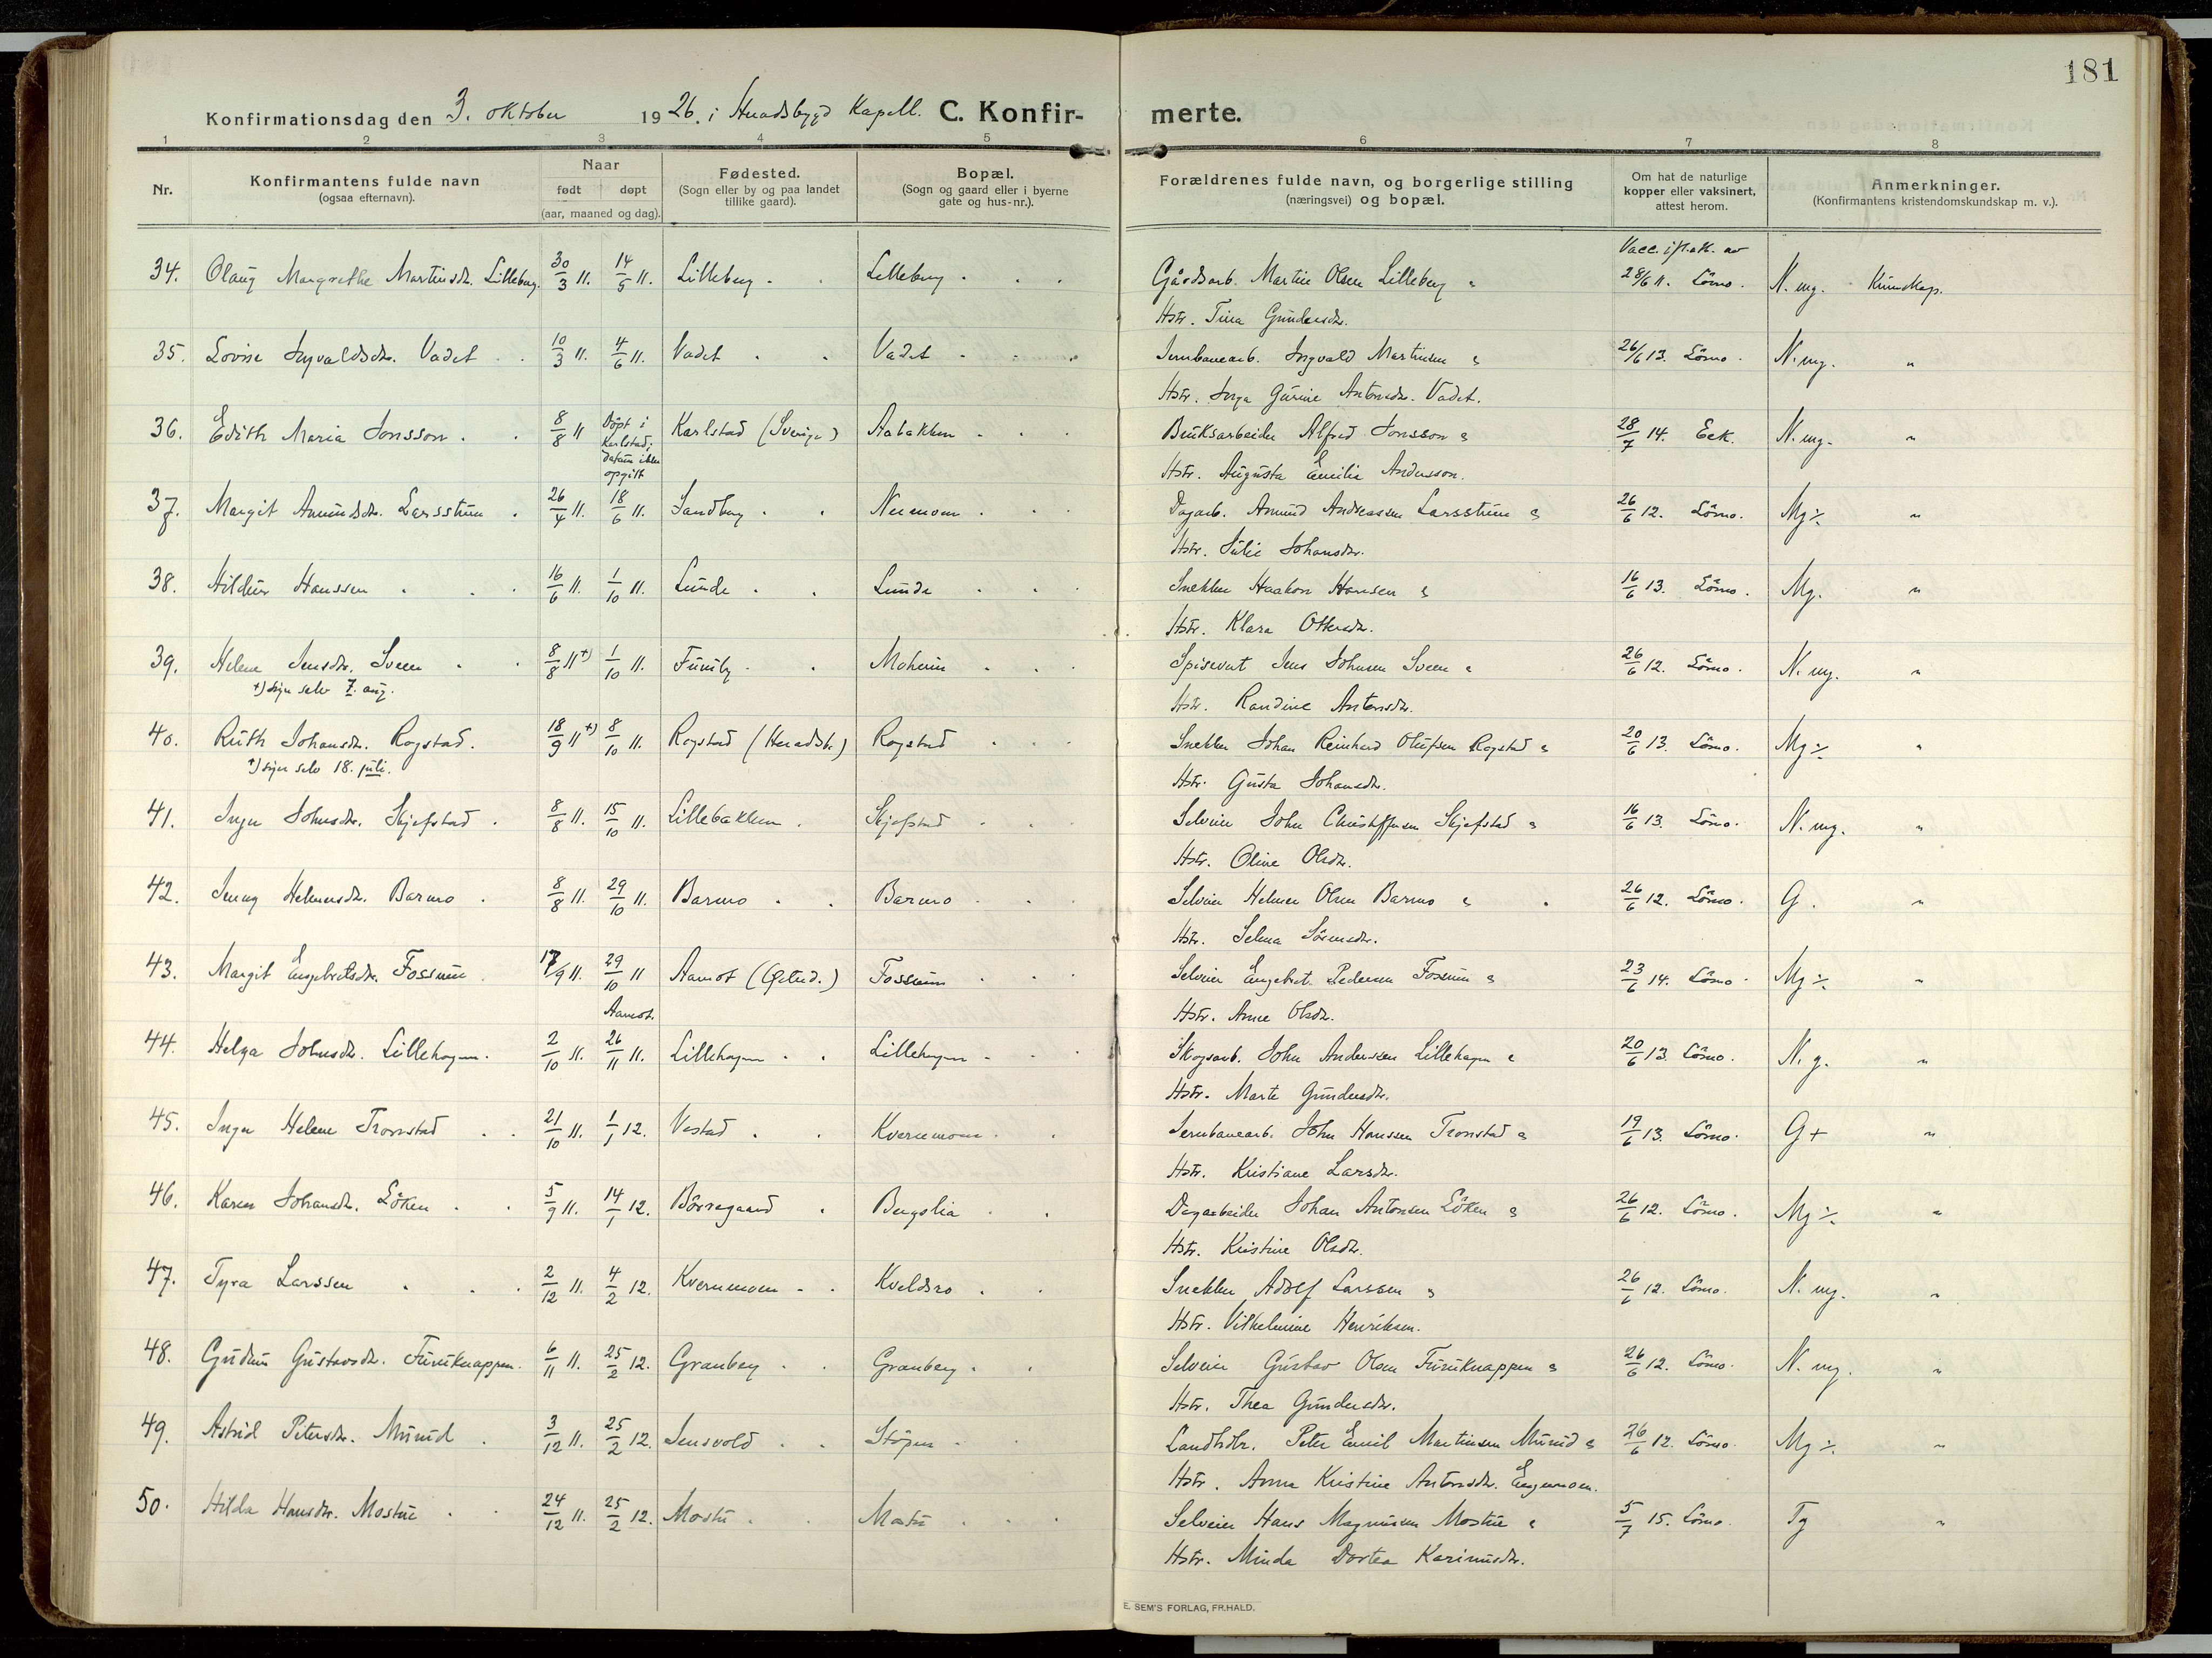 181
Konfirmationsdag den 3. oktober 1926. i Heradsbygd Kapell. C. Konfirmerte.
1 2 3 4 5 6 7 8
Nr. Konfirmantens fulde navn (ogsaa efternavn). Naar født døpt (aar, maaned og dag). Fødested. (Sogn eller by og paa landet tillike gaard). Bopæl. (Sogn og gaard eller i byerne gate og hus-nr.). Forældrenes fulde navn, og borgerlige stilling (næringsvei) og bopæl. Om hat de naturlige kopper eller vaksinert, attest herom. Anmerkninger. (Konfirmantens kristendomskundskap m. v.).
Vacc. ifl. att. av
34. Olaug Margrethe Martinsdr. Lilleberg. 30/3 11. 14/5 11. Lilleberg Lilleberg Gårdsarb. Martin Olsen Lilleberg & 28/6 11. Lömo. N. mg. Kunnskap.
Hstr. Tina Gundersdr.
35. Lovise Ingvaldsdr. Vadet 10/3 11. 4/6 11. Vadet Vadet Jernbanearb. Ingvald Martinsen & 26/6 13. Lömo. N. mg. "
Hstr. Inga Gurine Antonsdr. Vadet.
36. Edith Maria Jonsson 8/8 11 Döpt i Karlstad; datum ikke opgitt Karlstad (Sverige) Aabakken Bruksarbeider Alfred Jonsson & 28/7 14. Eek. N. mg. "
Hstr. Augusta Emilia Andersson.
37. Margit Amundsdr. Larsstuen 26/4 11. 18/6 11. Sandberg Nermoen Dagarb. Amund Andreassen Larsstuen & 26/6 12. Lömo. Mg ÷ "
Hstr. Julie Johansdr.
38. Hildur Hanssen 16/6 11. 1/10 11. Lunde Lunde Snekker Haakon Hansen & 16/6 13. Lömo. Mg. "
Hstr. Klara Ottersdr.
39. Helene Jensdr. Sveen 8/8 11 +) 1/10 11. Furuly Moheim Spisevert Jens Johnsen Sveen & 26/6 12. Lömo. N. mg. "
+) sier selv 7. aug.
Hstr. Randine Antonsdr.
40. Ruth Johansdr. Rogstad. 18/9 11 +) 8/10 11. Rogstad (Heradsb.) Rogstad Snekker Johan Reinhard Olufsen Rogstad & 20/6 13. Lömo. Mg ÷ "
+) sier selv 18. juli.
Hstr. Gusta Johansdr.
41. Inga Johnsdr. Skjefstad 8/8 11. 15/10 11. Lillebakken Skjefstad Selveier John Christoffersen Skjefstad & 16/6 13. Lömo. N. mg. "
Hstr. Oline Olsdr.
42. Jenny Helmersdr. Barmo 8/8 11. 29/10 11. Barmo Barmo Selveier Helmer Olsen Barmo & 26/6 12. Lömo. G. "
Hstr. Selma Sörensdr.
43. Margit Engebretsdr. Fossum 17/9 11. 29/10 11 Aamot Aamot (Østerd.) Fossum Selveier Engebret Pedersen Fossum & 23/6 14. Lömo. Mg ÷ "
Hstr. Anne Olsdr.
44. Helga Johnsdr. Lillehagen. 2/10 11. 26/11 11. Lillehagen Lillehagen Skogsarb. John Anderssen Lillehagen & 20/6 13. Lömo. N. g. "
Hstr. Marte Gundersdr.
45. Inga Helene Tronstad 21/10 11. 1/1 12. Vestad Kvernmoen Jernbanearb. John Hanssen Tronstad & 19/6 13. Lömo. G+ "
Hstr. Kristiane Larsdr.
46. Karen Johansdr. Löken 5/9 11. 14/1 12. Börregaard Bergslia Dagarbeider Johan Antonsen Löken & 26/6 12. Lömo. Mg ÷ "
Hstr. Kristine Olsdr.
47. Tyra Larssen 2/12 11. 4/2 12. Kvernmoen Kveldsro Snekker Adolf Larssen & 26/6 12. Lömo. N. mg. "
Hstr. Vilhelmine Henriksen.
48. Gudrun Gustavsdr. Furuknappen. 6/11 11. 25/2 12. Granberg Granberg Selveier Gustav Olsen Furuknappen & 26/6 12. Lömo. N. mg. "
Hstr. Thea Gundersdr.
49. Astrid Petersdr. Mürud 3/12 11. 25/2 12. Jensvold Stöpen Landhdlr. Peter Emil Martinsen Mürud & 26/6 12. Lömo. Mg ÷ "
Hstr. Anna Kristine Antonsdr. Engermoen.
50. Hilda Hansdr. Mostue 24/12 11. 25/2 12. Mostu Mostu Selveier Hans Magnusen Mostue & 5/7 15. Lömo. Tg "
Hstr. Minda Dortea Karinusdr.
E. SEM'S FORLAG, FR.HALD.